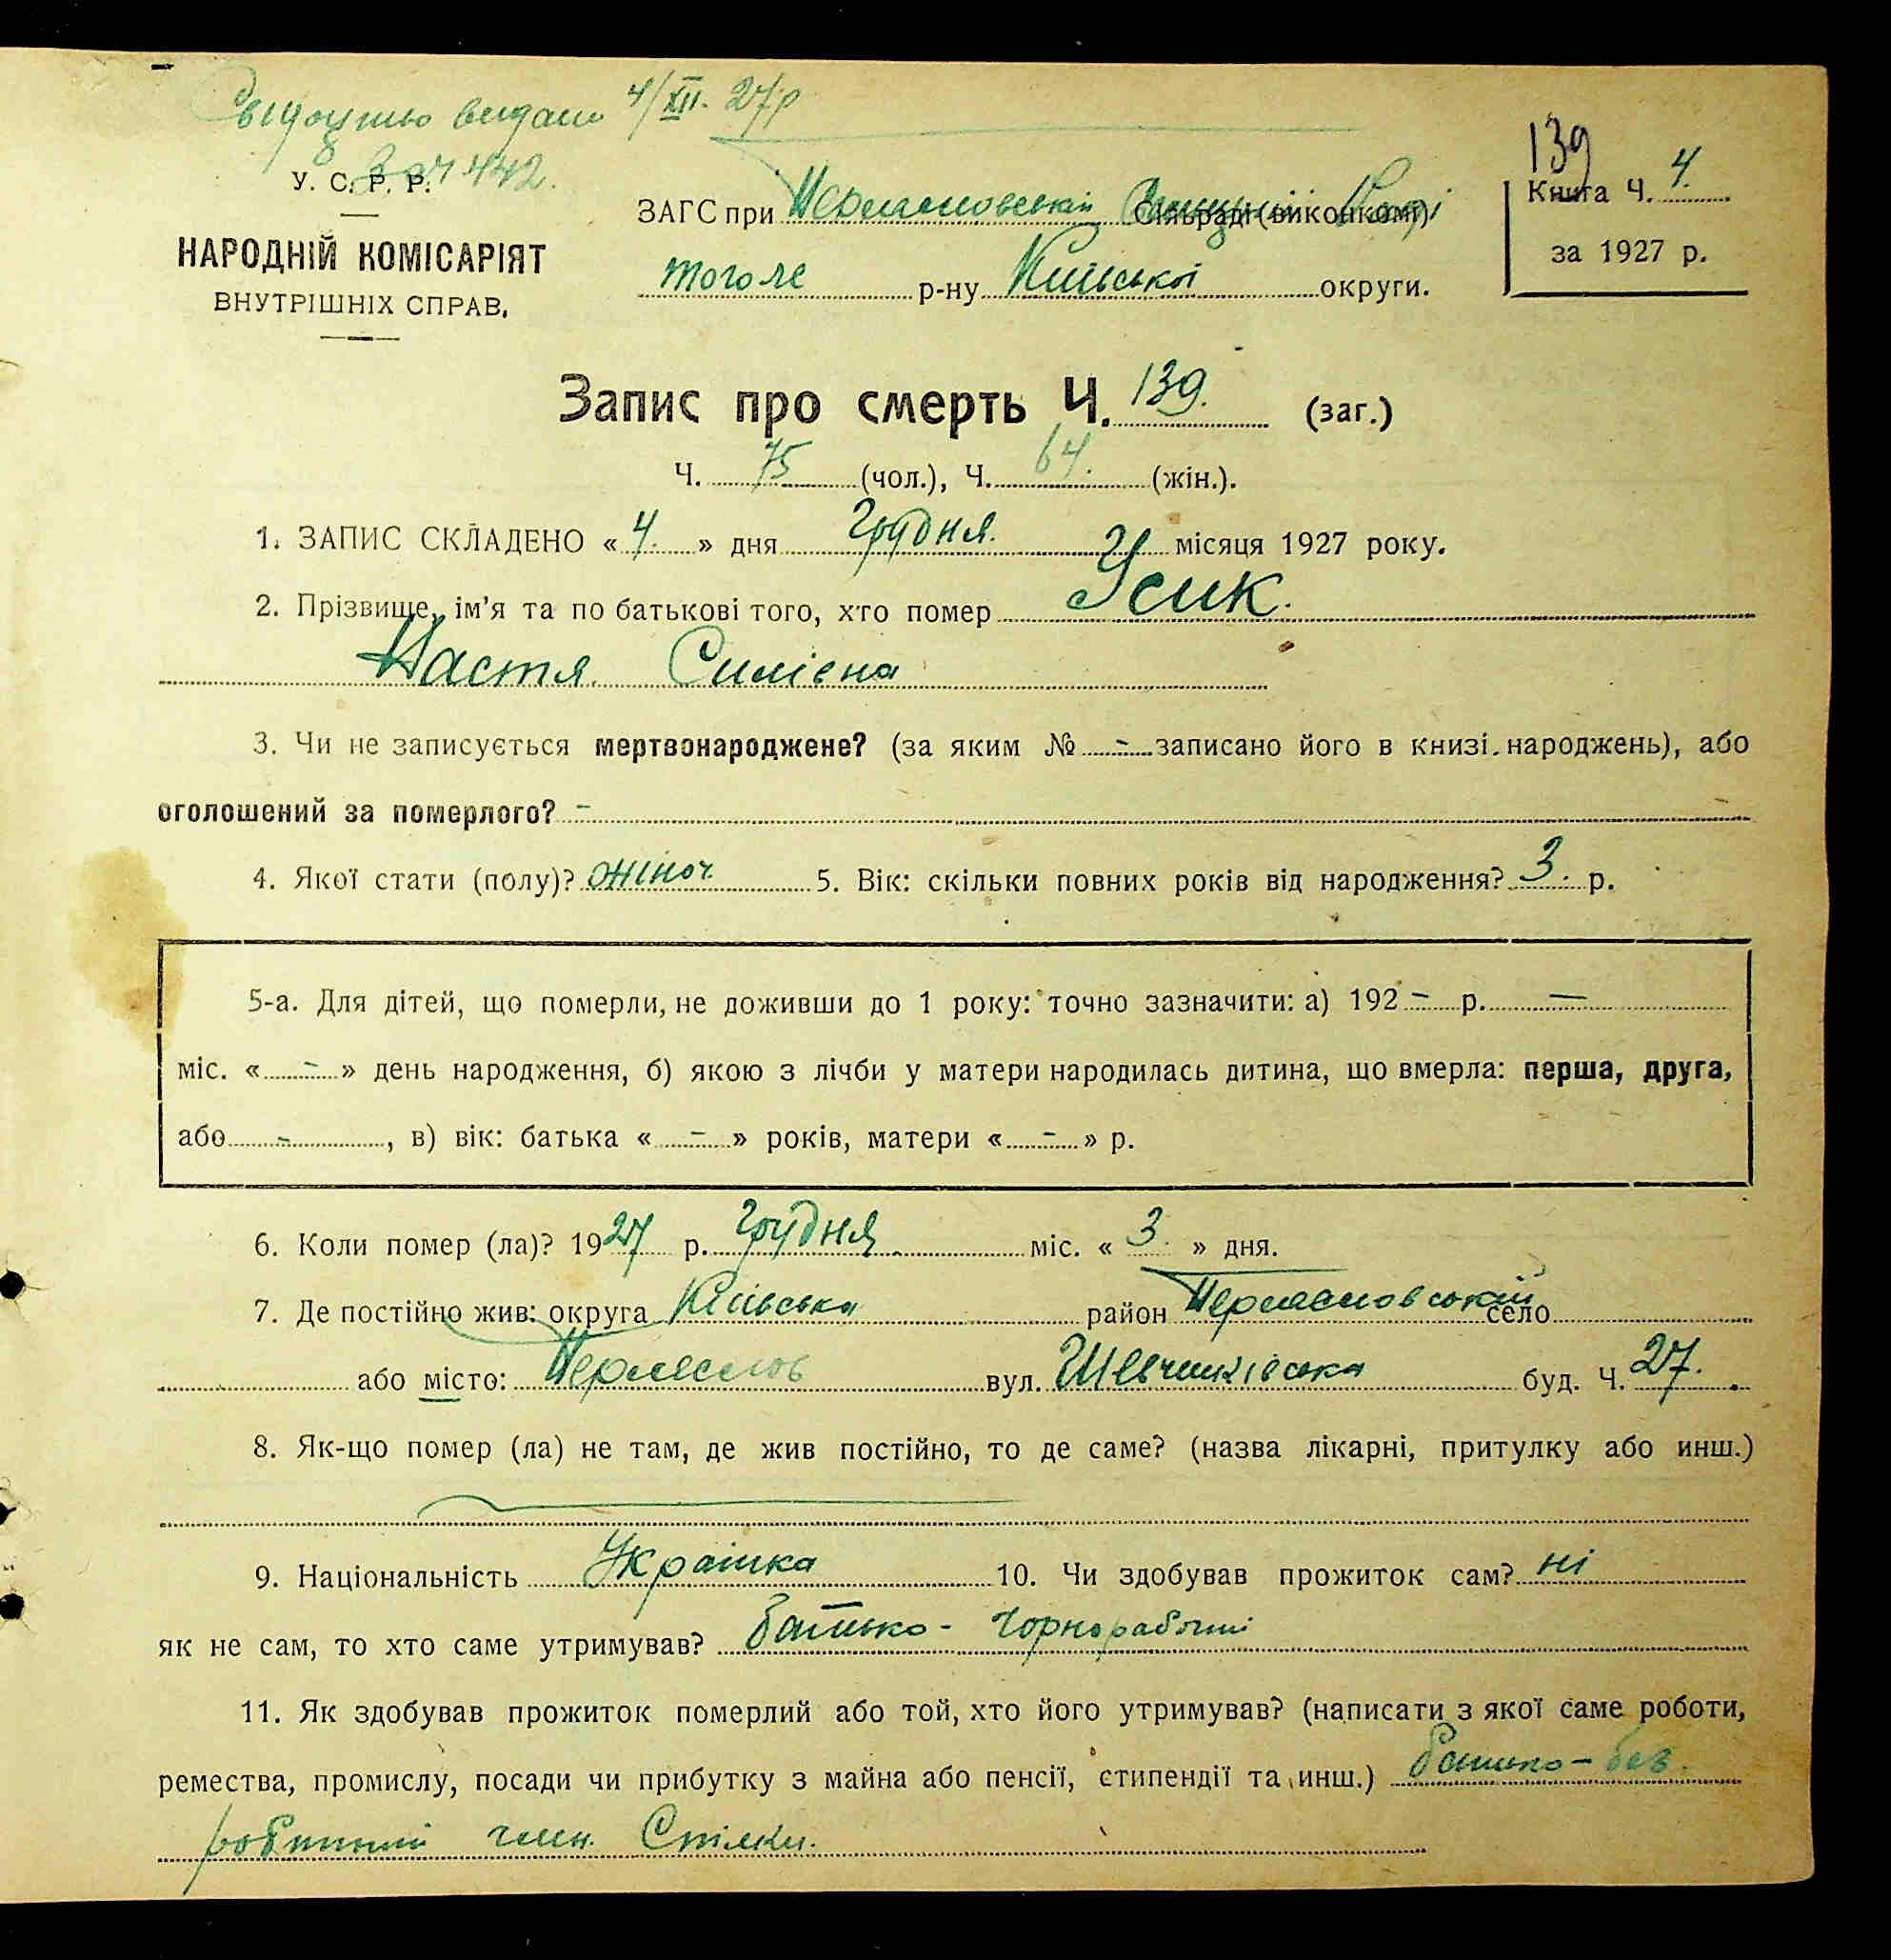 Свідоцтво видано 4/XII. 27 р
За Ч 442.
139
У. С. Р. Р.
ЗАГС при Переяславській Сільраді (виконкомі)
Книга Ч. 4.
НАРОДНІЙ КОМІСАРІЯТ
того же р-ну Київської округи.
за 1927 р.
ВНУТРІШНІХ СПРАВ.
Запис про смерть Ч. 139. (заг.)
Ч. 75 (чол.), Ч. 64. (жін.).
1. ЗАПИС СКЛАДЕНО « 4. » дня Грудня. місяця 1927 року.
2. Прізвище, ім’я та по батькові того, хто помер Усик.
Настя
3. Чи не записується мертвонароджене? (за яким № - записано його в книзі народжень), або
оголошений за померлого? -
4. Якої стати (полу)? жіноч 5. Вік: скільки повних років від народження? 3. р.
5-а. Для дітей, що померли, не доживши до 1 року: точно зазначити: а) 192 - р. —
міс. « - » день народження, б) якою з лічби у матери народилась дитина, що вмерла: перша, друга,
або - , в) вік: батька « - » років, матери « - » р.
6. Коли помер (ла)? 1927 р. Грудня міс. « 3. » дня.
7. Де постійно жив: округа Київська район Переясловський село
або місто: Переяслов вул. Шевченківська буд. Ч. 27.
8. Як-що помер (ла) не там, де жив постійно, то де саме? (назва лікарні, притулку або инш.)
9. Національність Українка 10. Чи здобував прожиток сам? ні
як не сам, то хто саме утримував? Батько - Чорнорабочий
11. Як здобував прожиток померлий або той, хто його утримував? (написати з якої саме роботи,
ремества, промислу, посади чи прибутку з майна або пенсії, стипендії та инш.) Батько - без
робітний член. Спілки.